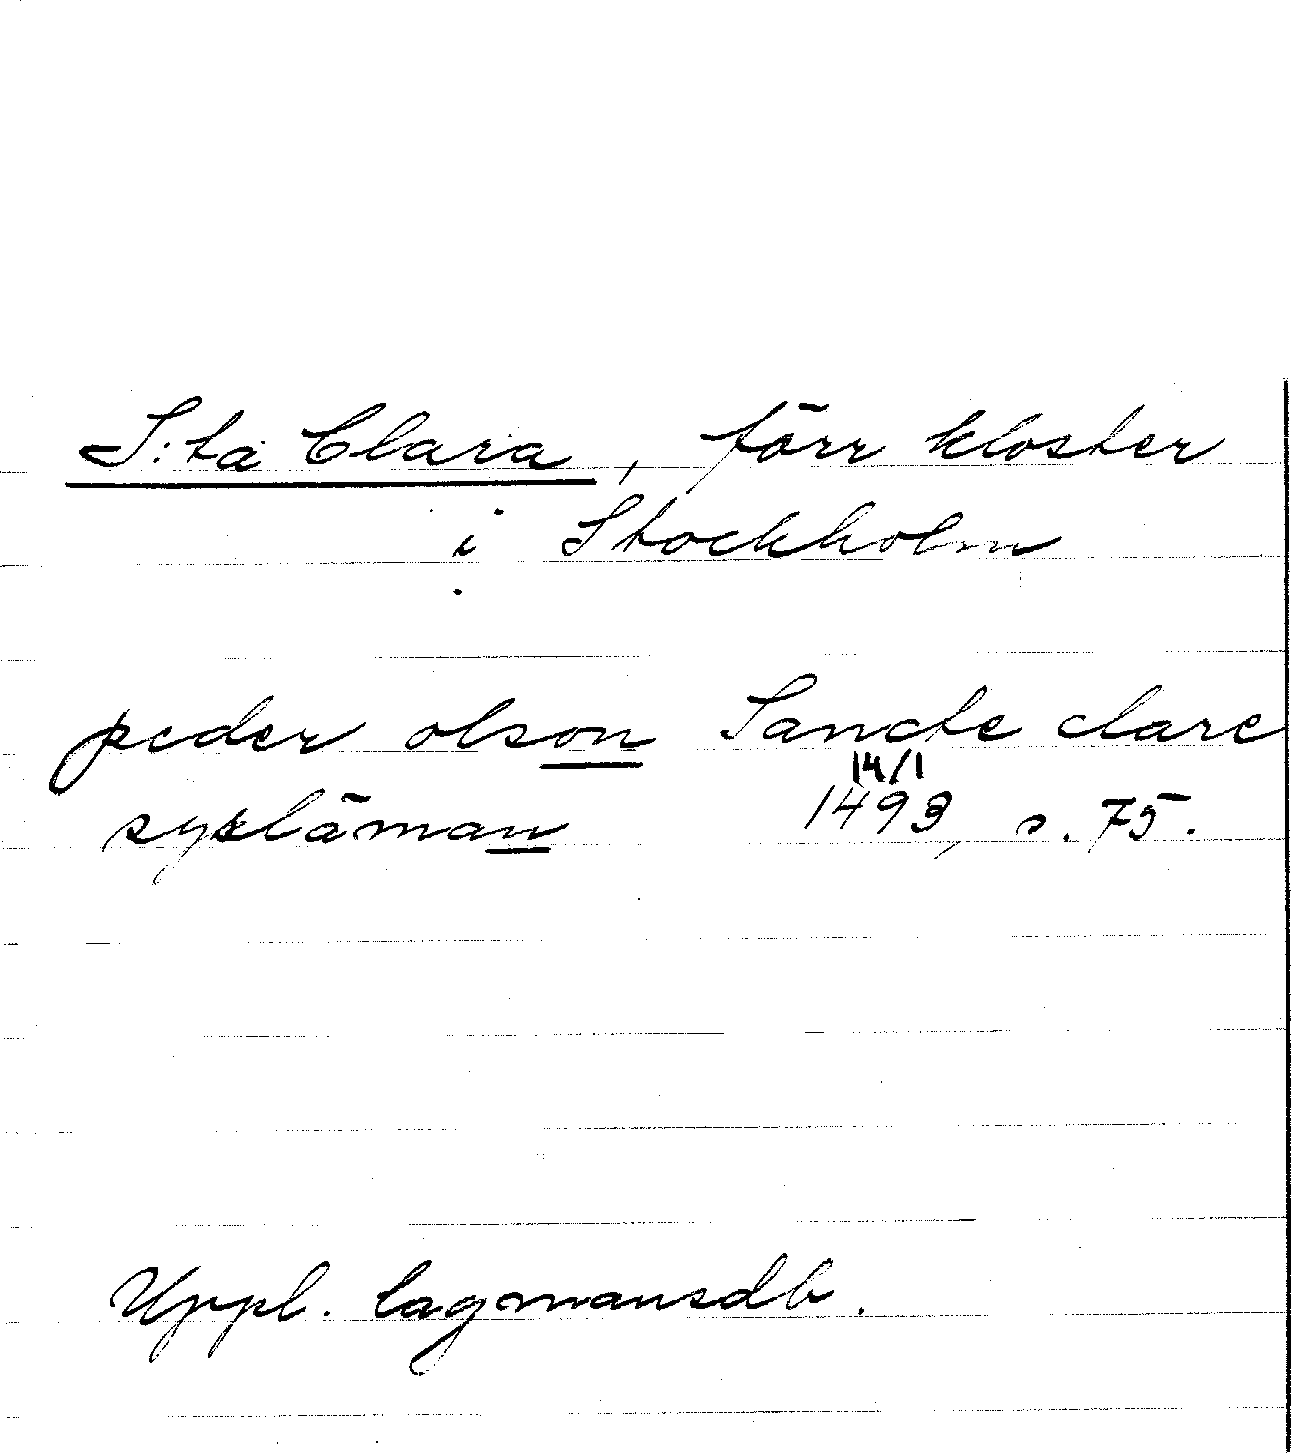 S:ta Clara, förr kloster
i Stockholm
peder olson Sancte clare
14/1
syslaman 1493, s. 75.
Uppl. lagmansdb.